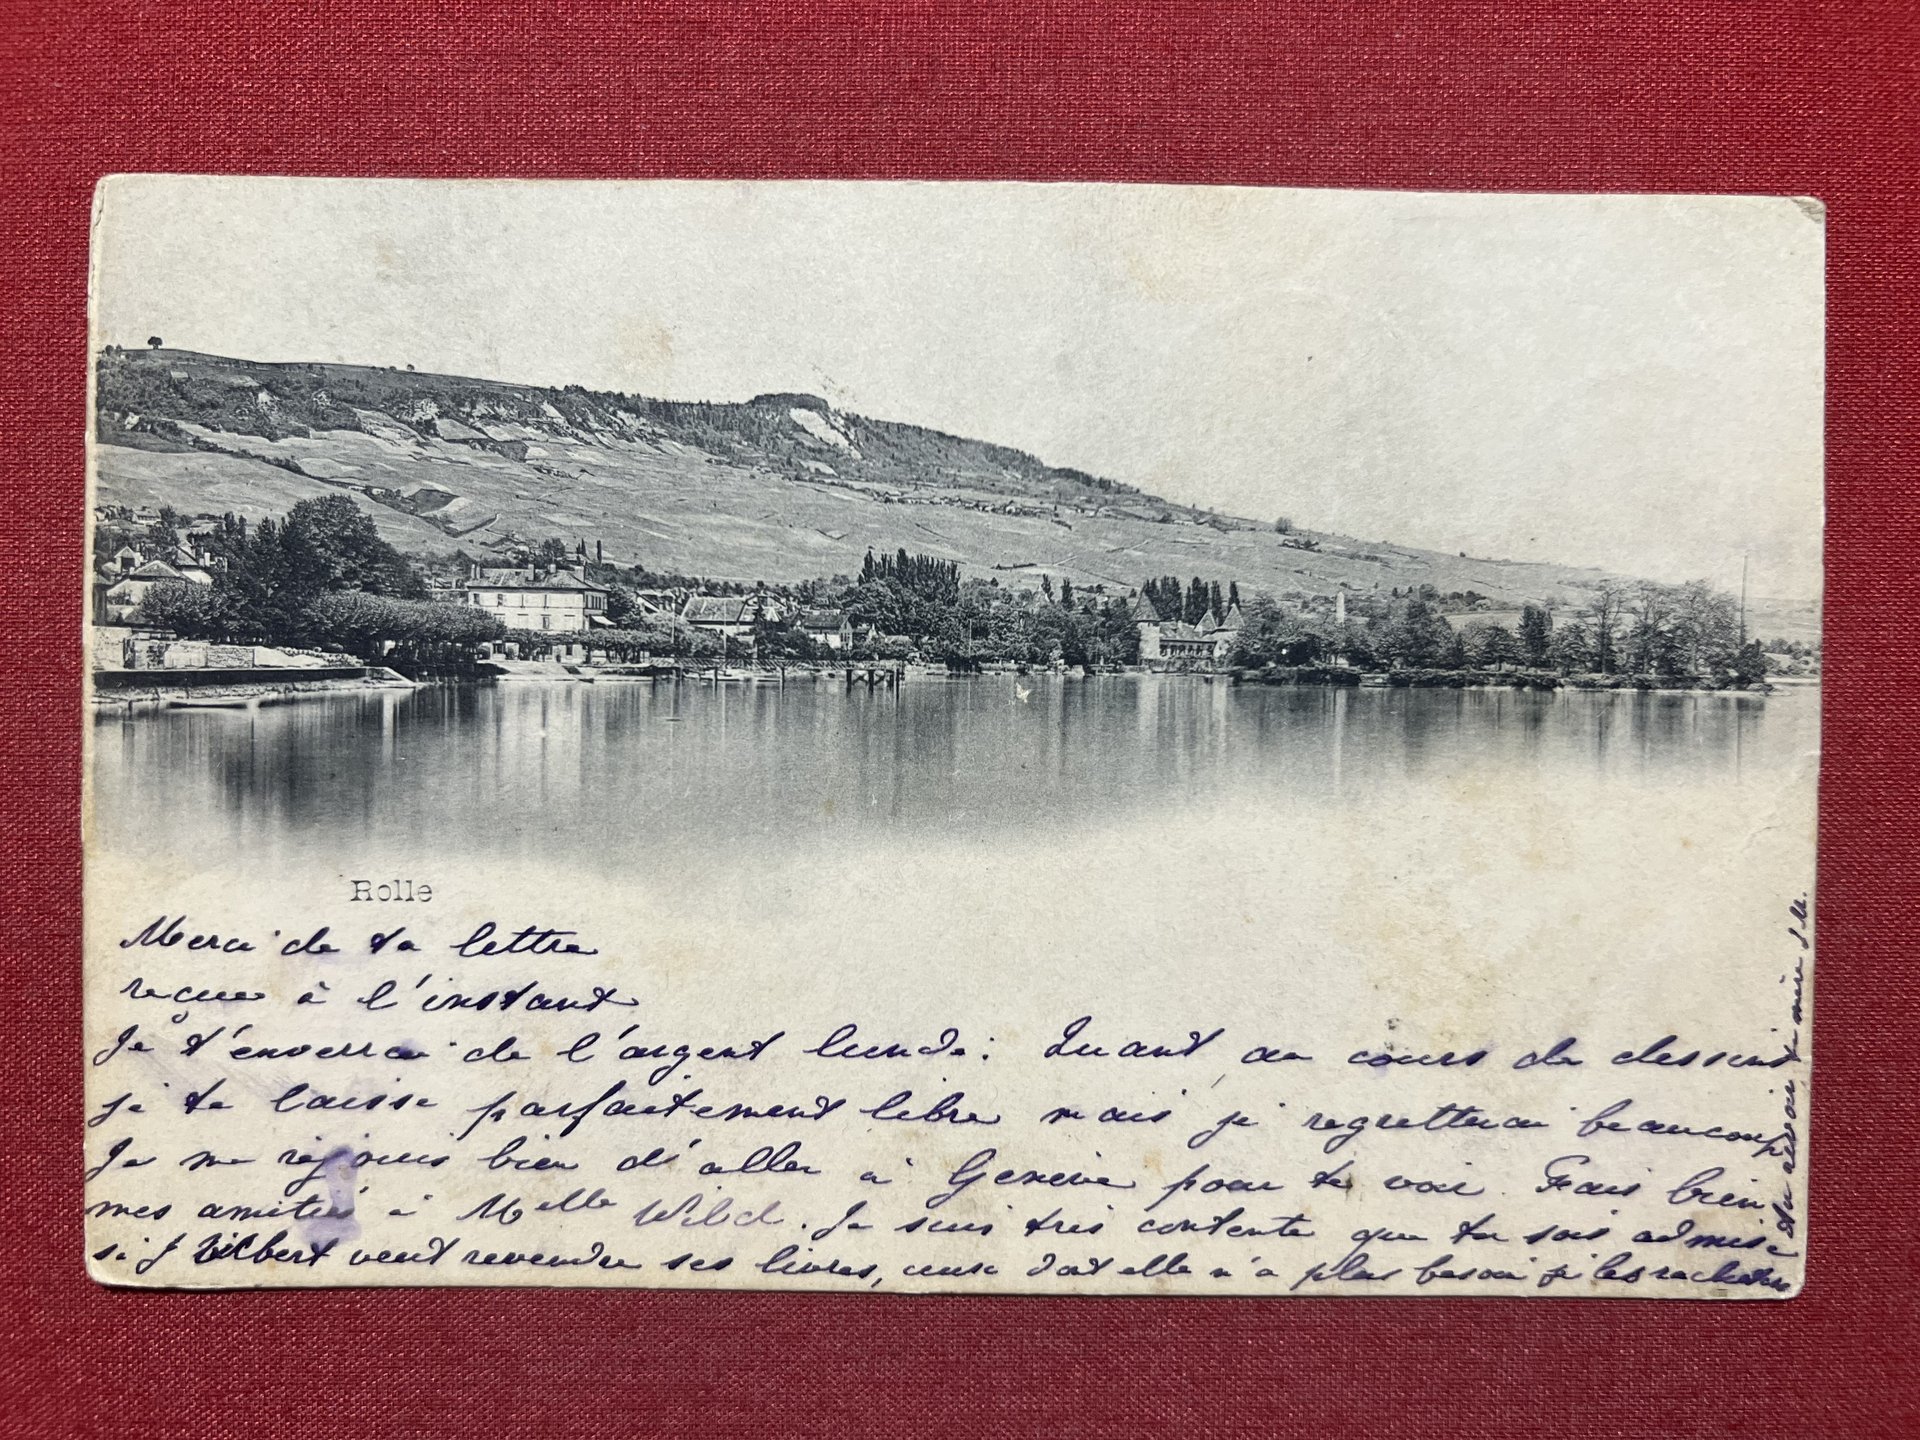 Rolle
Merci de ta lettre
reçue à l'instant
Je t'enverrai de l'argent lundi. Quant au cours de dessin
je te laisse parfaitement libre mais je regretterai beaucoup
Je me réjouis bien d'aller à Genève pour te voir. Fais bien
mes amitiés à Melle Wild. Je suis très contente que tu sois admise
si J Vilbert veut revendre ses livres, ceux dont elle n'a plus besoin je les rachèterai
Au revoir ta mère J M.